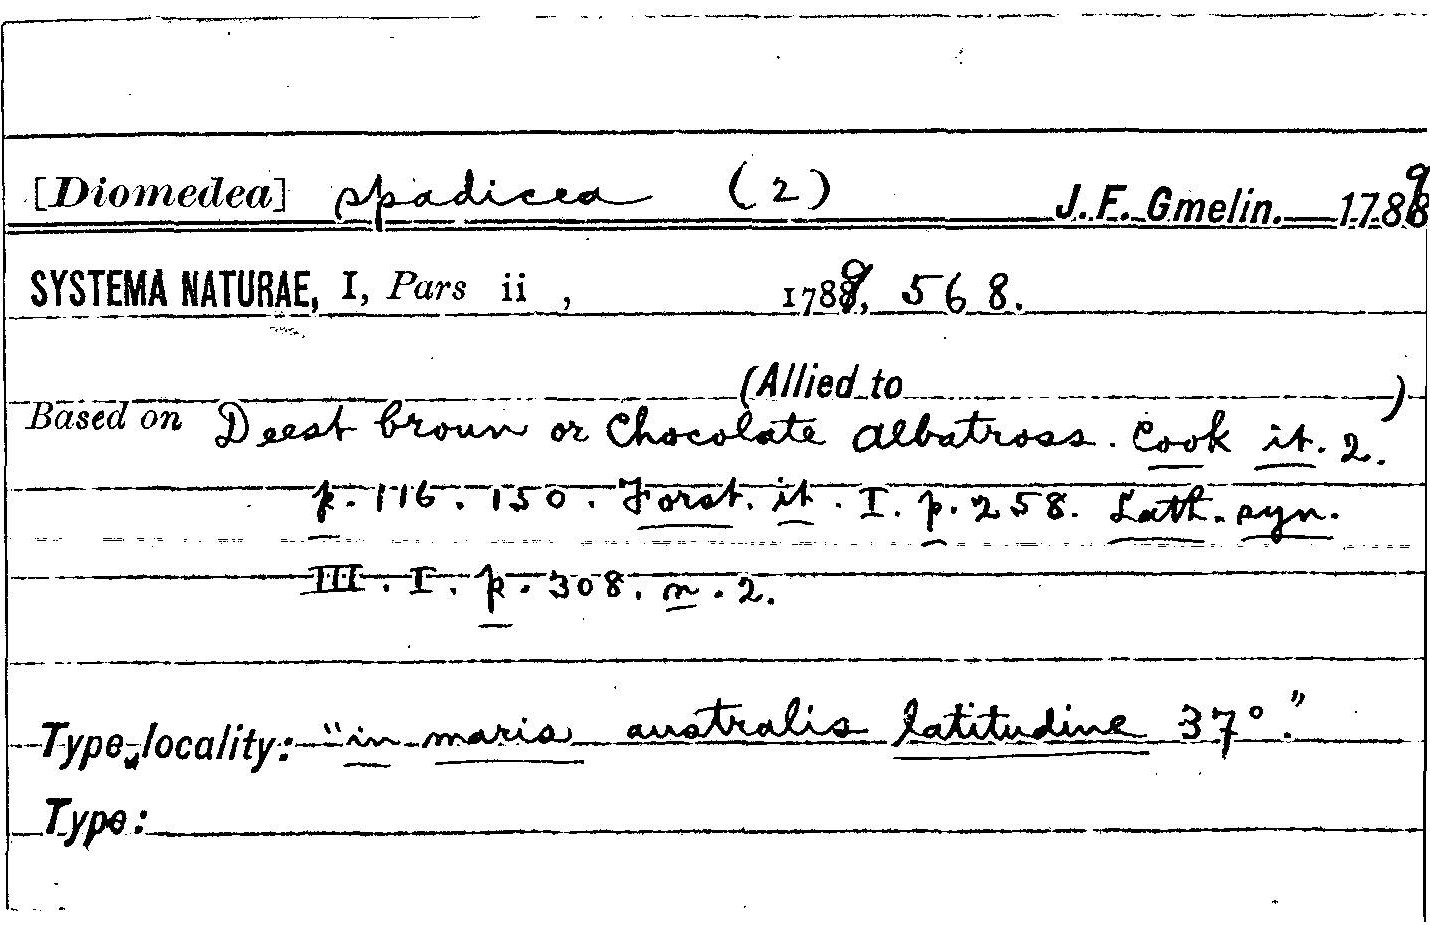 [Diomedea] spadicea (2) J. F. Gmelin. 1789
SYSTEMA NATURAE, I, Pars ii , 1789, 568.
(Allied to )
Based on Deest broun or Chocolate albatross. Cook it. 2.
p. 116. 150. Forst. it. I. p. 258. Lath. syn.
III. I. p. 308. n. 2.
Type locality: "in maris australis latitudine 37°."
Type: